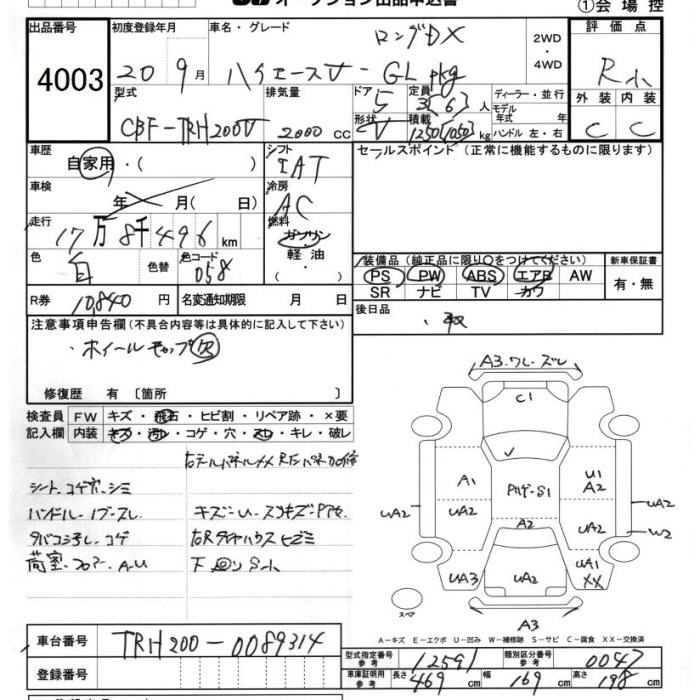 オークション出品申込書
①会場控
出品番号 4003
初度登録年月 20 9月
車名・グレード ロングDX
ハイエースV-GL pkg
2WD・4WD
評価点 R
外装 C 内装 C
型式 CBF-TRH200V
排気量 2000cc
ドア 5 定員 3(6)人
形状 V 積載 1250(1050)kg
ディーラー・並行
モデル年式 年
ハンドル 左・右
車歴 自家用・( )
シフト IAT
セールスポイント (正常に機能するものに限ります)
車検 年 月( 日)
冷房 AC
走行 17万8千496km
燃料 ガソリン・軽油・( )
色 白 色替 色コード 058
装備品(純正品に限り○をつけてください)
PS PW ABS エアB AW
SR ナビ TV カワ
新車保証書 有・無
R券 10,840円
名変通知期限 月 日
後日品 ・取
注意事項申告欄(不具合内容等は具体的に記入して下さい)
・ホイールキャップ欠
修復歴 有 〔箇所 〕
検査員記入欄
FW キズ・飛石・ヒビ割・リペア跡・×要
内装 キズ・汚れ・コゲ・穴・スレ・キレ・破レ
シート コゲ穴、シミ
ハンドル・ノブ・スレ
キズ・U・スリキズ・
タバココ コゲ
右Rタイヤハウス
荷室・フロアー A.U
下回りサビ
A3.ワレ・ズレ
C1
A1
UA2
UA2
A2
U1
A2
UA2
UA2
W2
UA3
UA2
UA1
XX
A3
スペア
A-キズ E-エクボ U-凹み W-補修跡 S-サビ C-腐食 XX-交換済
車台番号 TRH200-0089314
登録番号
型式指定番号 参考 12591
類別区分番号 参考 0047
車庫証明用 参考 長さ 469cm 幅 169cm 高さ 198cm